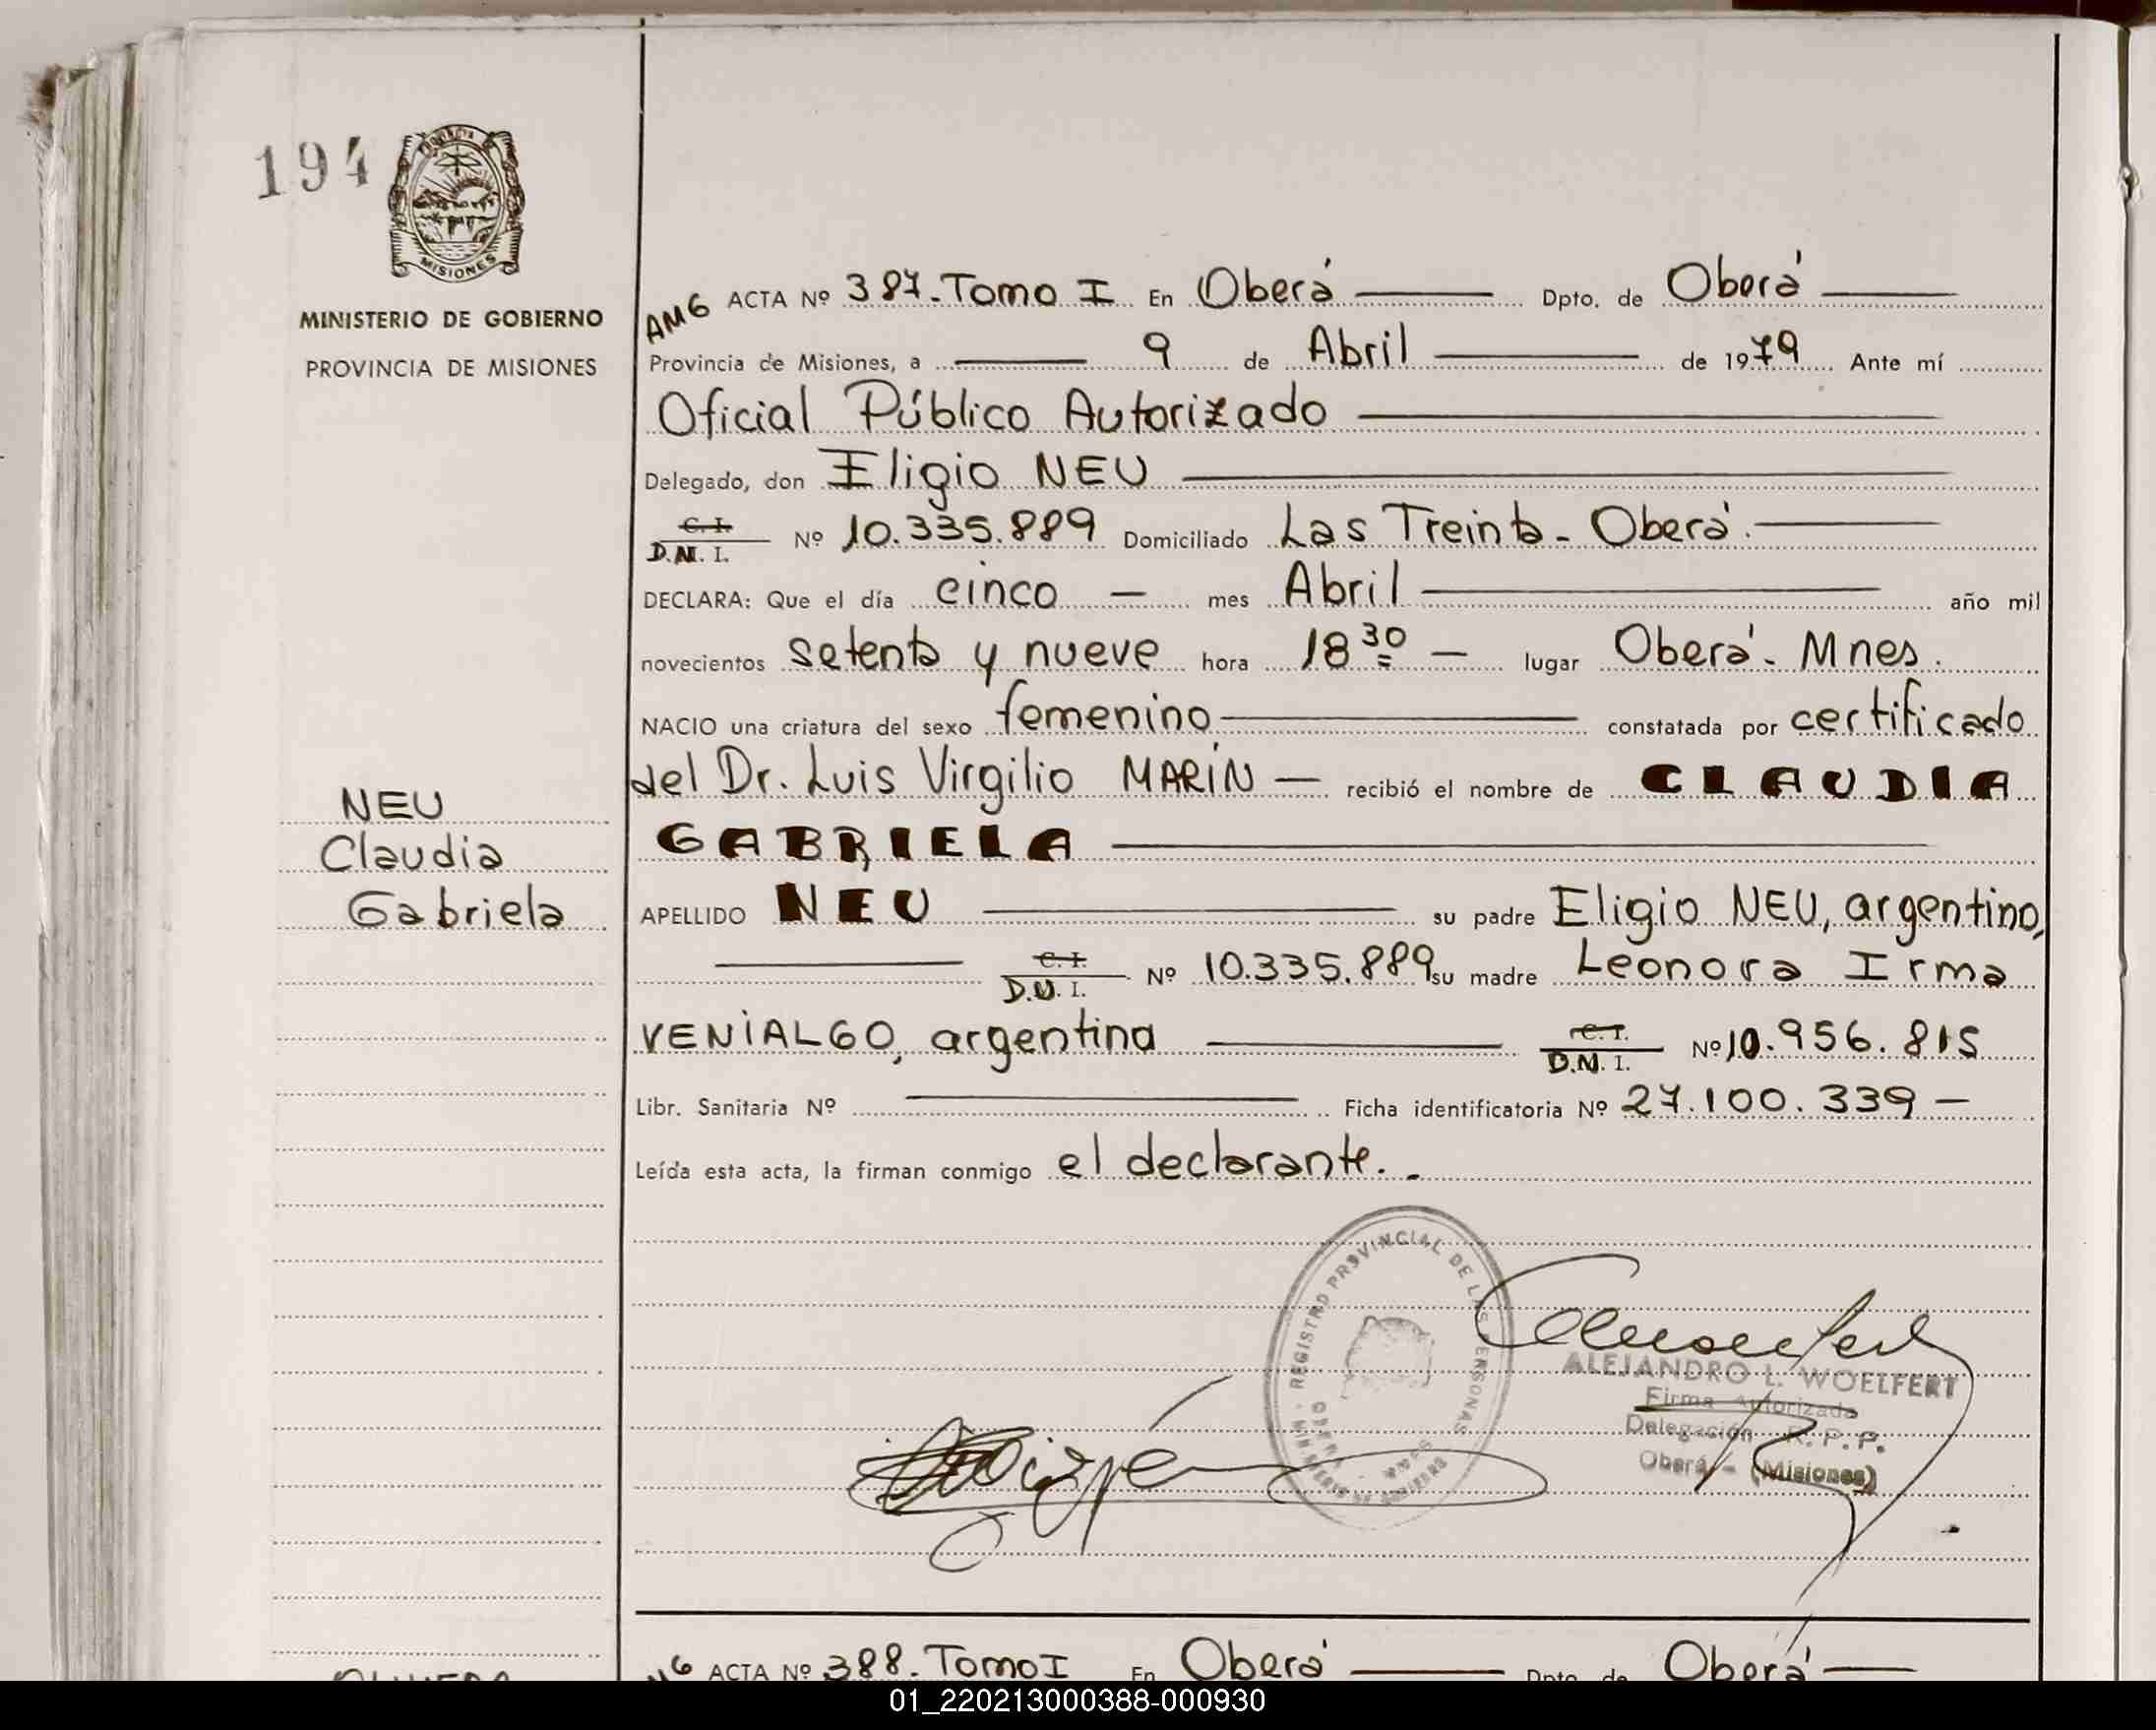 194
MISIONES
MINISTERIO DE GOBIERNO
PROVINCIA DE MISIONES
NEU
Claudia
Gabriela
AMG ACTA Nº 387. Tomo I En Oberá Dpto. de Oberá
Provincia de Misiones, a 9 de Abril de 1979 Ante mí
Oficial Público Autorizado
Delegado, don Eligio NEU
C. I. D.N.I. Nº 10.335.889 Domiciliado Las Treinta - Oberá.
DECLARA: Que el día cinco — mes Abril año mil
novecientos setenta y nueve hora 18 30 — lugar Oberá - Mnes.
NACIO una criatura del sexo femenino constatada por certificado
del Dr. Luis Virgilio MARÍN — recibió el nombre de CLAUDIA
GABRIELA
APELLIDO NEU su padre Eligio NEU, argentino,
C. I. D.N.I. Nº 10.335.889 su madre Leonora Irma
VENIALGO, argentina C. I. D.N.I. Nº 10.956.815
Libr. Sanitaria Nº Ficha identificatoria Nº 27.100.339 —
Leída esta acta, la firman conmigo el declarante. -
REGISTRO PROVINCIAL DE LAS PERSONAS
ALEJANDRO L. WOELFERT
Firma Autorizada
Delegación R. P. P.
Oberá - (Misiones)
ACTA Nº 388. Tomo I En Oberá Dpto. de Oberá
01_220213000388-000930